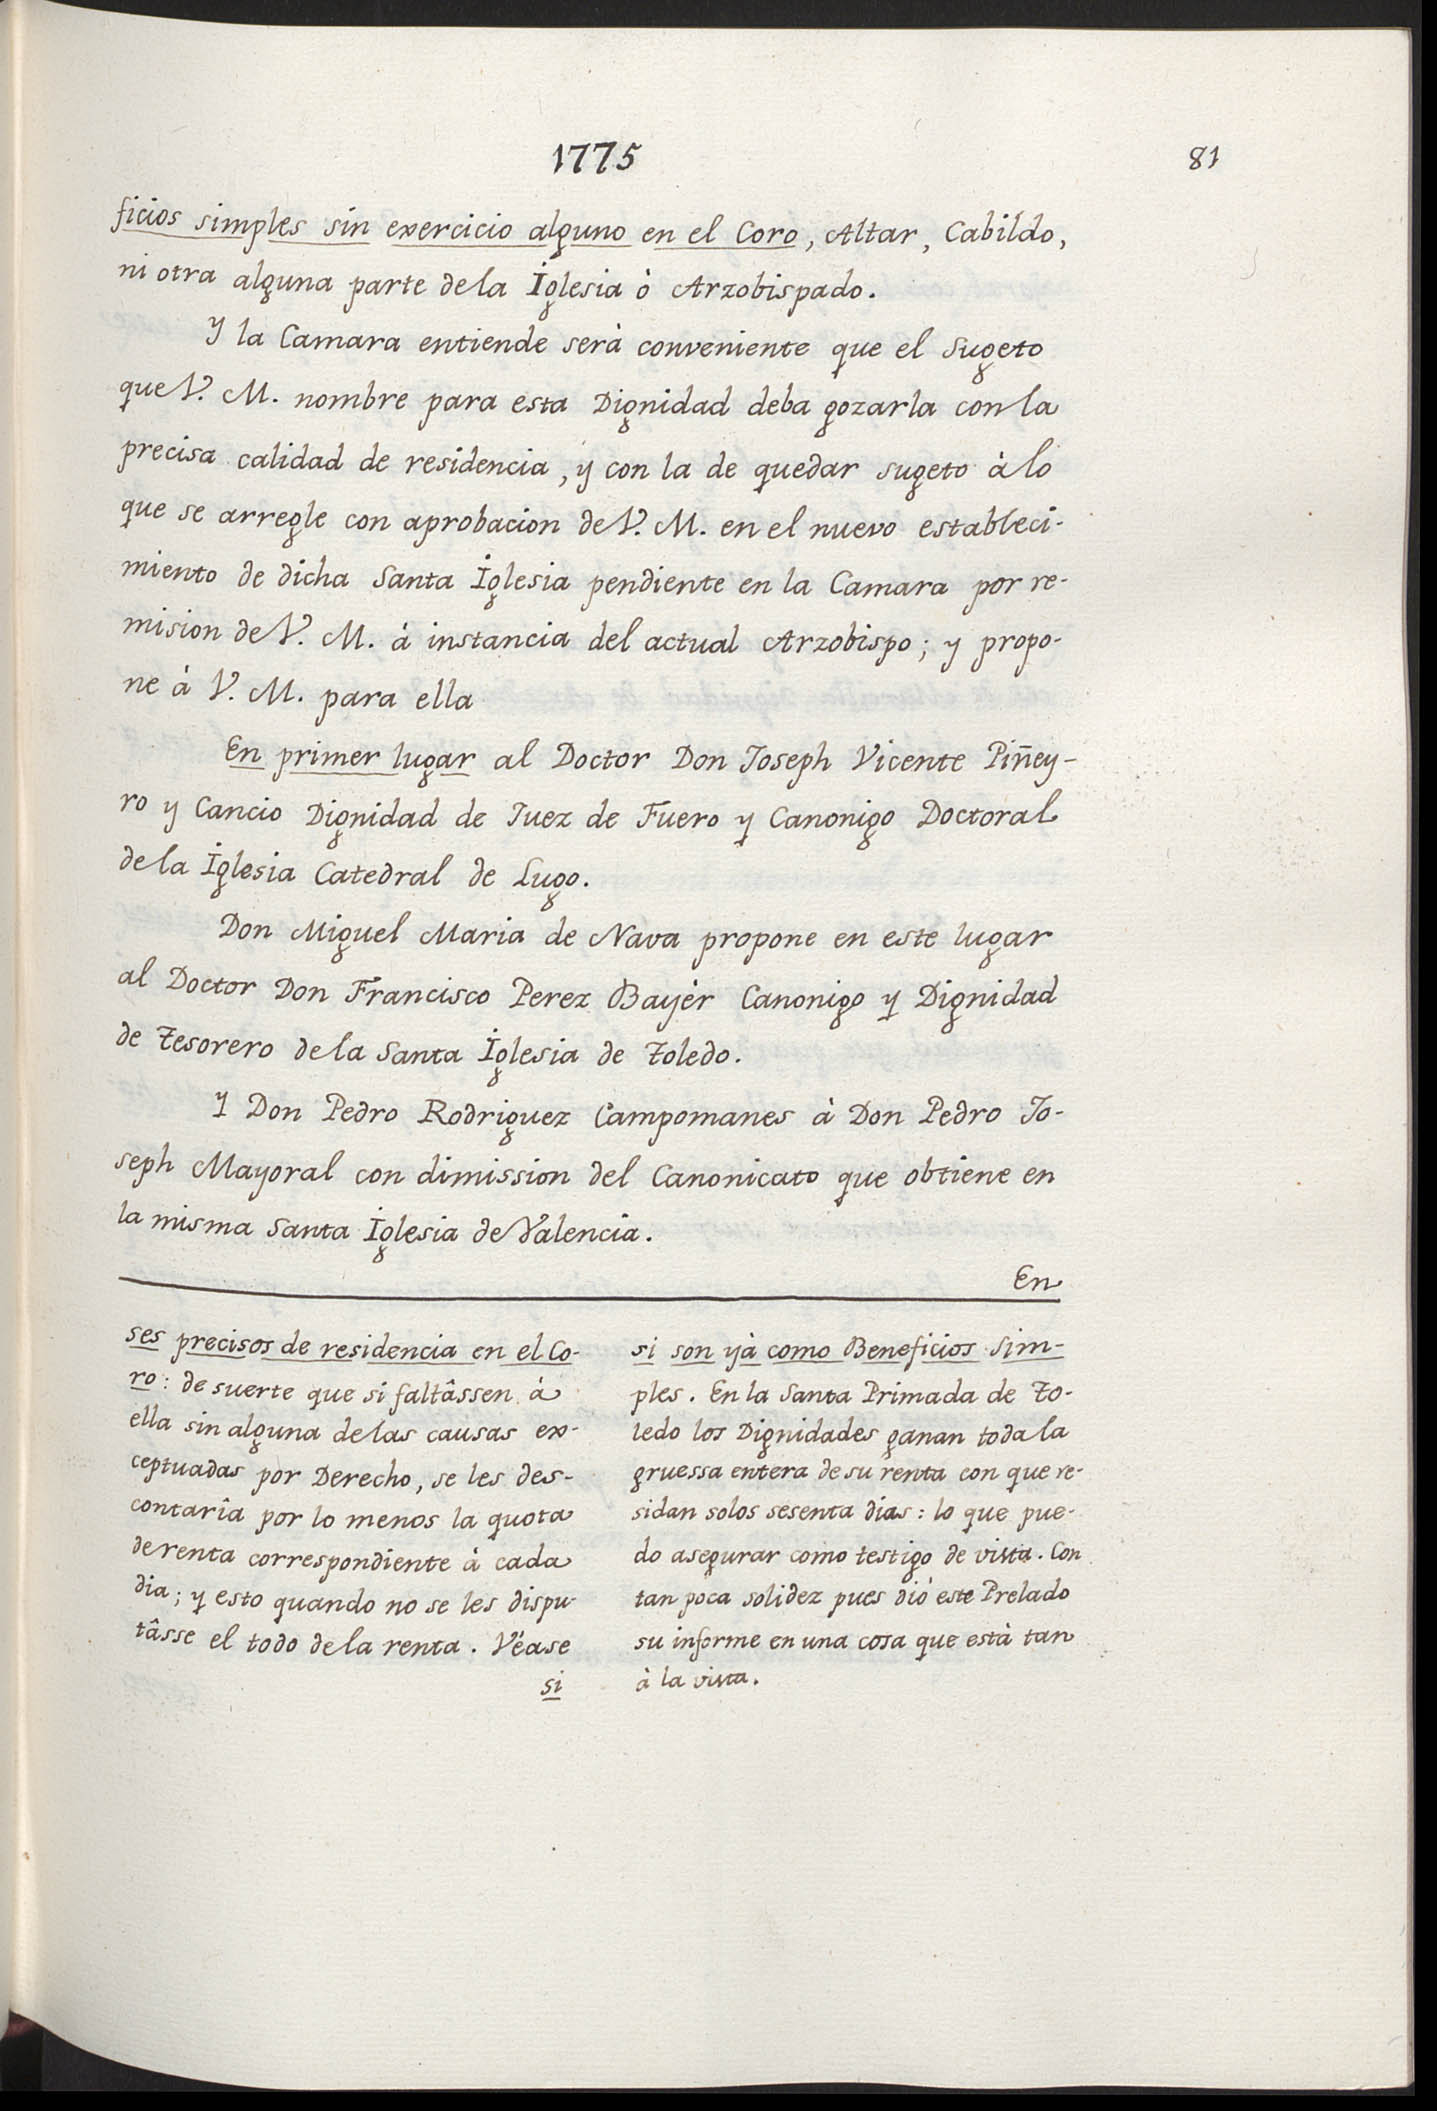 1775
81
ficios simples sin exercicio alguno en el Coro, Altar, Cabildo,
ni otra alguna parte de la Iglesia ò Arzobispado.
Y la Camara entiende serà conveniente que el sugeto
que V. M. nombre para esta Dignidad deba gozarla con la
precisa calidad de residencia, y con la de quedar sugeto à lo
que se arregle con aprobacion de V. M. en el nuevo estableci-
miento de dicha Santa Iglesia pendiente en la Camara por re-
mision de V. M. à instancia del actual Arzobispo; y propo-
ne à V. M. para ella
En primer lugar al Doctor Don Joseph Vicente Piñey-
ro y Cancio Dignidad de Juez de Fuero y Canonigo Doctoral
de la Iglesia Catedral de Lugo.
Don Miguel Maria de Nava propone en este lugar
al Doctor Don Francisco Perez Bayèr Canonigo y Dignidad
de Tesorero de la Santa Iglesia de Toledo.
Y Don Pedro Rodriguez Campomanes à Don Pedro Jo-
seph Mayoral con dimission del Canonicato que obtiene en
la misma Santa Iglesia de Valencia.
En
ses precisos de residencia en el Co-
ro: de suerte que si faltâssen à
ella sin alguna de las causas ex-
ceptuadas por Derecho, se les des-
contarîa por lo menos la quota
de renta correspondiente à cada
dia; y esto quando no se les dispu-
tâsse el todo de la renta. Véase
si
si son yà como Beneficios Sim-
ples. En la Santa Primada de To-
ledo los Dignidades ganan toda la
gruessa entera de su renta con que re-
sidan solos sesenta dias: lo que pue-
do asegurar como testigo de vista. Con
tan poca solidez pues diò este Prelado
su informe en una cosa que està tan
à la vista.